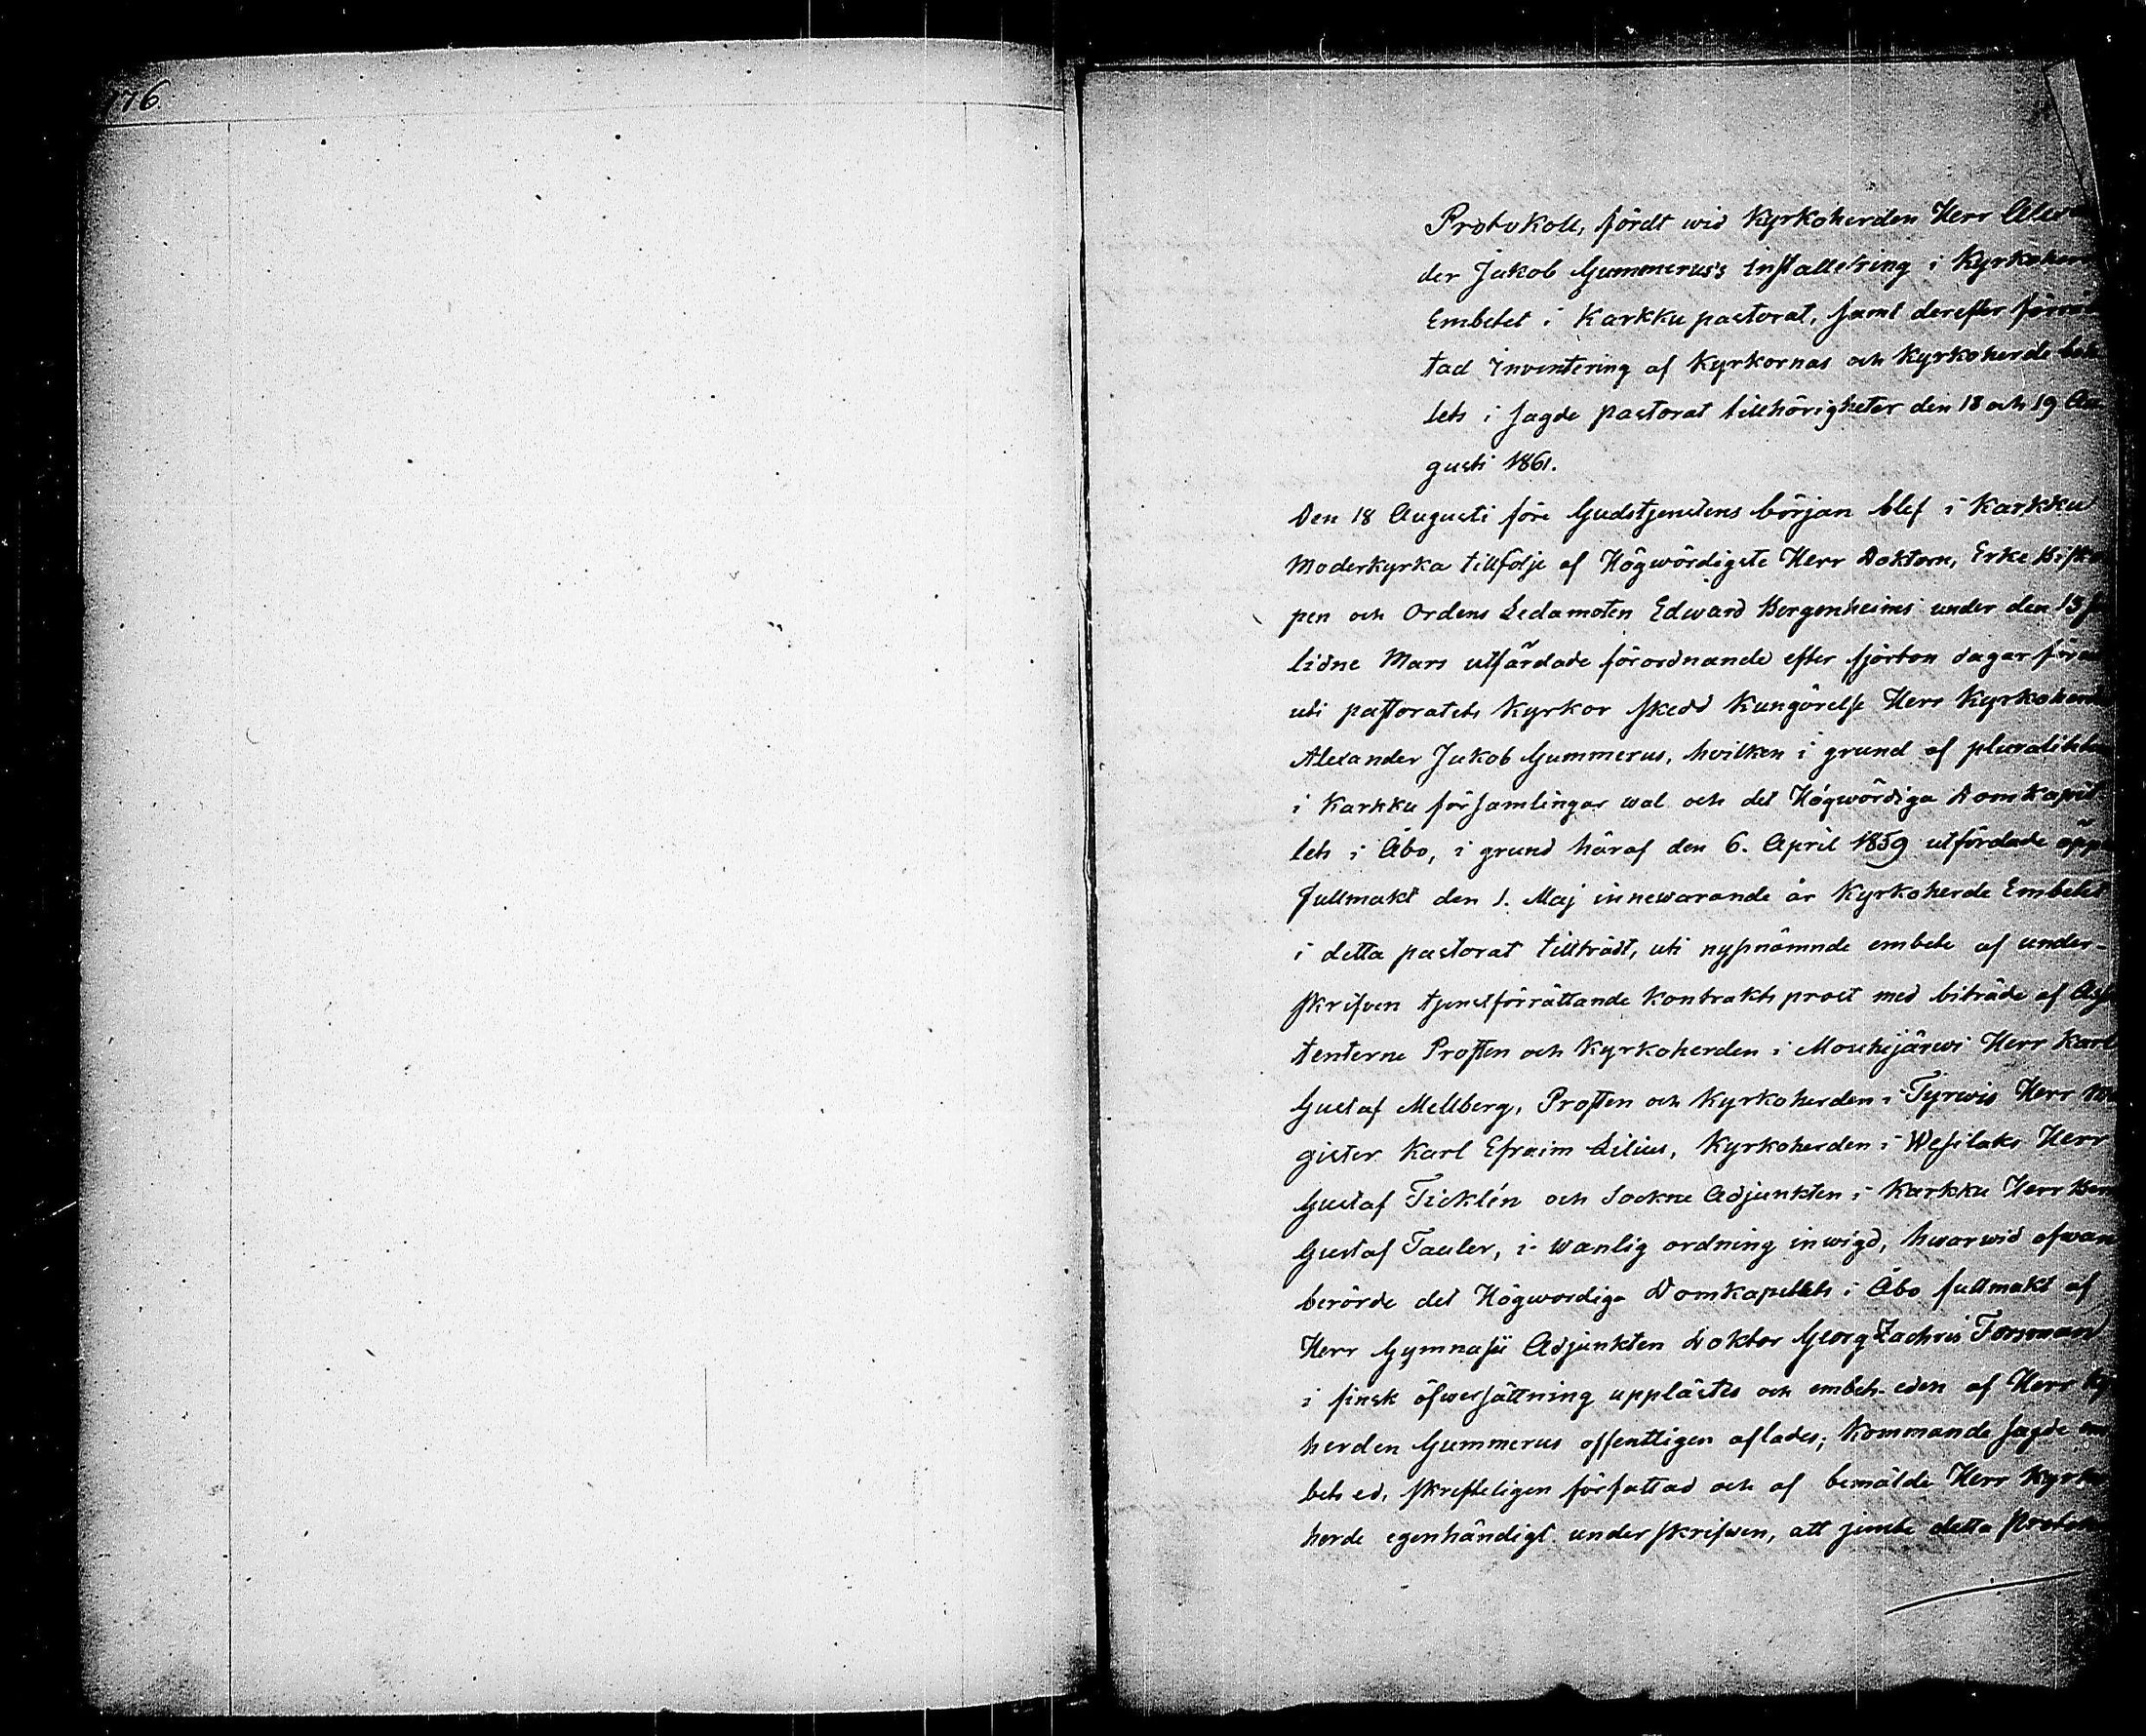 176
Protokoll, fördt wid Kyrkoherden Herr Alexan
der Jakob Gummerus's installering i Kyrkoherde
Embetet i Karkku pastorat, samt derefter förrät
tad inventering af Kyrkornas och Kyrkoherde bol
lets i sagde pastorat tillhörigheter den 18 och 19 Au
gusti 1861.
Den 18 Augusti före Gudstjenstens början blef i Karkku
Moderkyrka tillfölje af Högwördigste Herr Doktorn, Erke Bisko
pen och Ordens Ledamoten Edward Bergenheims under den 13
lidne Mars utfärdade förordnande efter fjorton dagar förut
uti pastoratets Kyrkor skedd Kungörelse Herr Kyrkoherden
Alexander Jakob Gummerus, hvilken i grund af pluraliteten
i Karkku församlingar wal och det Högwördiga Domkapit
lets i Åbo, i grund häraf den 6. April 1859 utfärdade öppna
fullmakt den 1. Maj innewarande år Kyrkoherde Embetet
i detta pastorat tillträdt, uti nyssnämnde embete af under-
skrifven tjenstförrättande Kontrakts prost med biträde af Assis
tenterne Prosten och Kyrkoherden i Mouhijärwi Herr Karl
Gustaf Mellberg, Prosten och Kyrkoherden i Tyrwis Herr Ma
gister Karl Efraim Lilius, Kyrkoherden i Wesilaks Herr
Gustaf Ticklén och Sockne Adjunkten i Karkku Herr
Gustaf Tauler, i wanlig ordning inwigd, hwarwid ofwan
berörde det Högwordiga Domkapitlets i Åbo fullmakt af
Herr Gymnasii Adjunkten Doktor Georg Zachris Forsman
i finsk öfwersättning upplästes och embets-eden af Herr Kyrko
herden Gummerus offentligen aflades; Kommande sagde em
bets ed, skrifteligen författad och af bemälde Herr Kyrko
herde egenhändigt underskrifwen, att jemte detta Protokoll